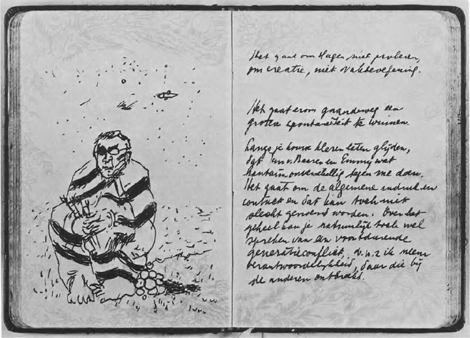 Het gaat om klagen, niet profeteren,
om creatie, niet vakbeoefening.
Het gaat erom gaandeweg een
grotere spontaniteit te winnen.
Langs je kouwe kleren laten glijden,
dat en Emmy wat
tegen me doen.
Het gaat om de algemene indruk en
contact en dat kan toch niet
slecht genoemd worden. Over het
geheel kan je natuurlijk toch wel
spreken van een voortdurende
generatieconflict, d.w.z. ik neem
verantwoordelijkheid, daar die bij
de anderen ontbreekt.